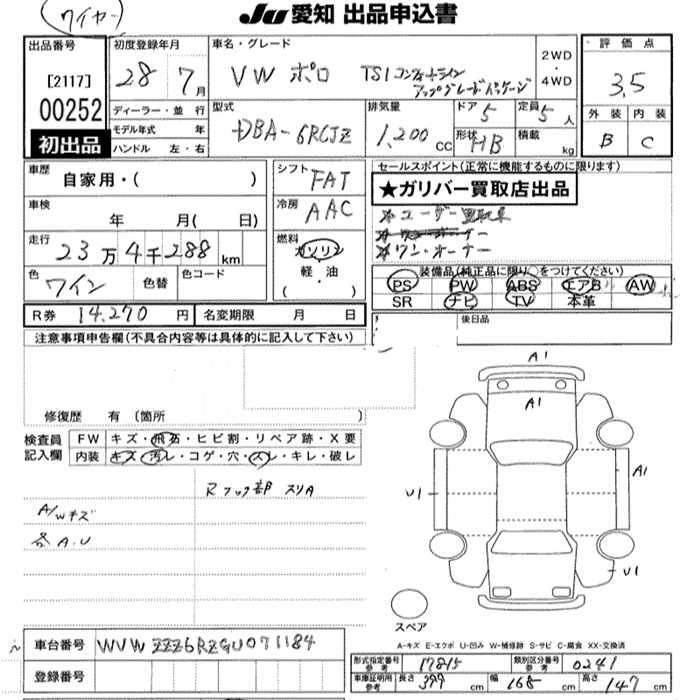 ワイヤー
JU 愛知 出品申込書
出品番号
[2117]
00252
初出品
初度登録年月
28 7月
ディーラー・並行
モデル年式 年
ハンドル 左・右
車名・グレード
VW ポロ TSI コンフォートライン
アップグレードパッケージ
2WD
・
4WD
型式
DBA-6RCJZ
排気量
1,200 CC
ドア 5
形状 HB
定員 5 人
積載 kg
評価点
3.5
外装 内装
B C
車歴
自家用・( )
車検
年 月(日)
走行
23万4千288km
色
ワイン
色替
色コード
シフト
FAT
冷房
AAC
燃料
ガソリン
軽・油
( ・ )
セールスポイント(正常に機能するものに限ります)
★ガリバー買取店出品
★ユーザー買取車
★ワン・オーナー
装備品(純正品に限り○をつけてください)
PS PW ABS エアB AW
SR ナビ TV 本革
R券 14,270 円
名変期限 月 日
後日品
注意事項申告欄(不具合内容等は具体的に記入して下さい)
修復歴 有 (箇所
検査員
記入欄
FW キズ・飛石・ヒビ割・リペア跡・X要
内装 キズ・汚レ・コゲ・穴・スレ・キレ・破レ
Rフック部 スリA
A/Wキズ
各A.U
A1
A1
A1
U1
U1
スペア
A-キズ E-エクボ U-凹み W-補修跡 S-サビ C-腐食 XX-交換済
車台番号 WVWZZZ6RZGU071184
登録番号
形式指定番号
参考
17815
類別区分番号
参考
0241
車庫証明用
参考
長さ 399 cm 幅 168 cm 高さ 147 cm